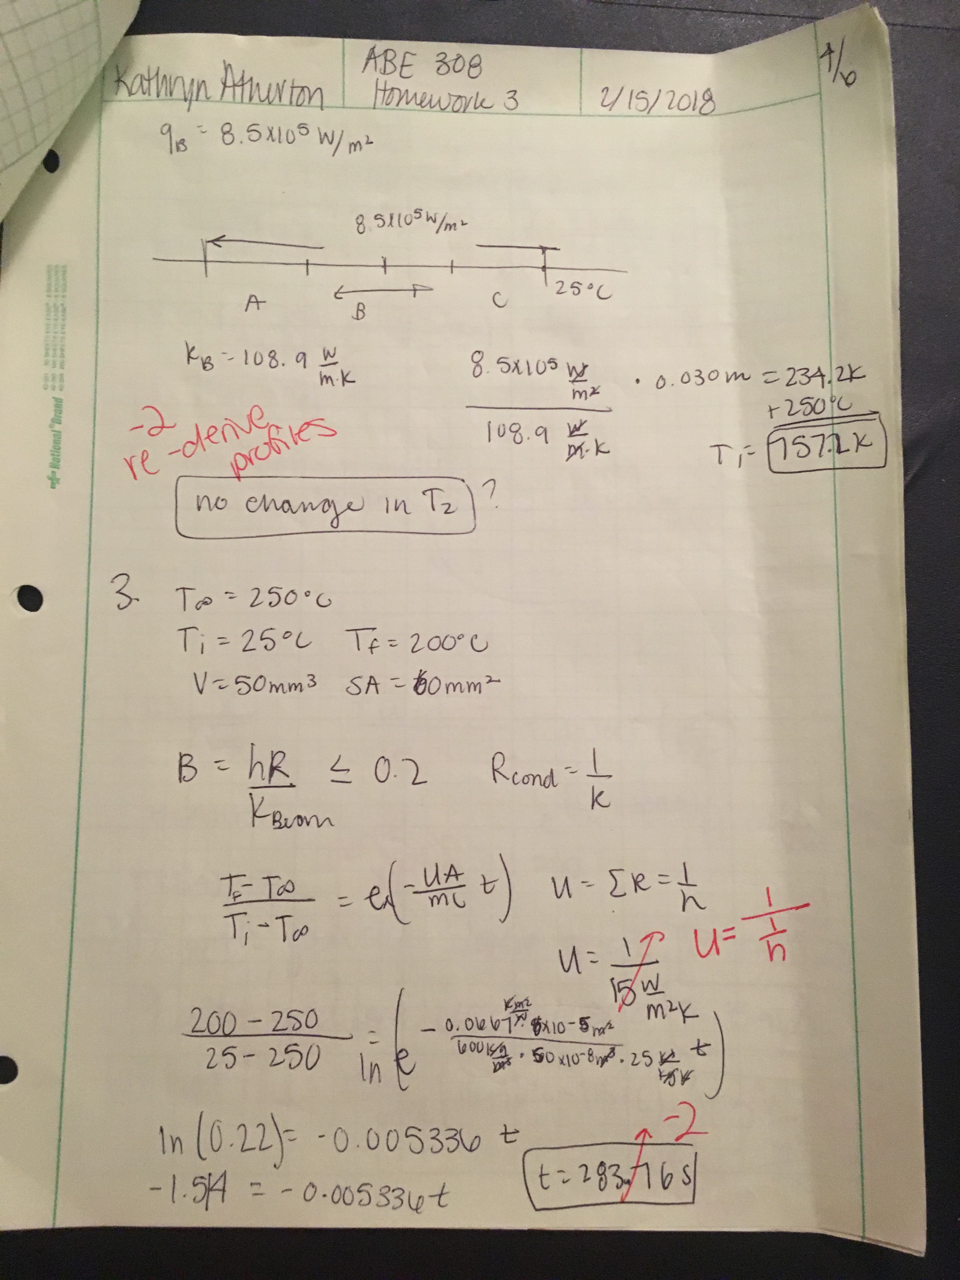 Kathryn Atherton
ABE 308
Homework 3
2/15/2018
4/6
q_B = 8.5x10^5 W/m^2
8.5x10^5 W/m^2
A
B
C
25°C
k_B = 108.9 W/m·K
8.5x10^5 W/m^2 / 108.9 W/m·K · 0.030m = 234.2K
+250°C
T_1 = 757.2K
-2
re-derive
profiles
no change in T_2 ?
National® Brand
3. T∞ = 250°C
T_i = 25°C T_f = 200°C
V = 50mm^3 SA = 60mm^2
B = hR/k_Beam ≤ 0.2 R_cond = 1/k
T_f - T∞ / T_i - T∞ = e(-UA/mc t) U = ΣR = 1/h
U = 1/15 W/m^2K U = 1/(1/h)
200-250 / 25-250 = ln(e - 0.0667 m^2 / 600 kg/m^3 · 50x10^-8 m^3 · 25 t)
ln(0.22) = -0.005336 t
-2
-1.514 = -0.005336t t = 283.76s